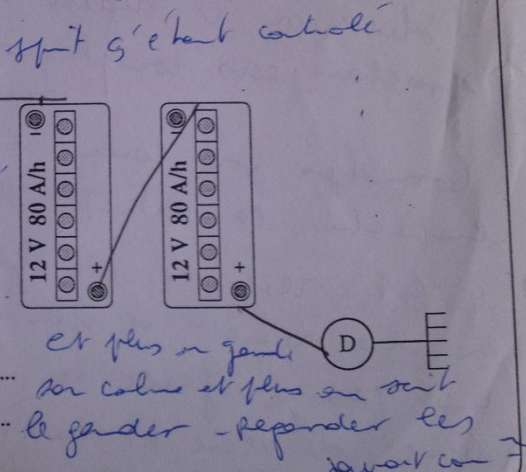 s'étant contrôlé
12 V 80 A/h
- +
12 V 80 A/h
- +
D
et plus on garde
son calme et plus on sait
le garder - regarder les